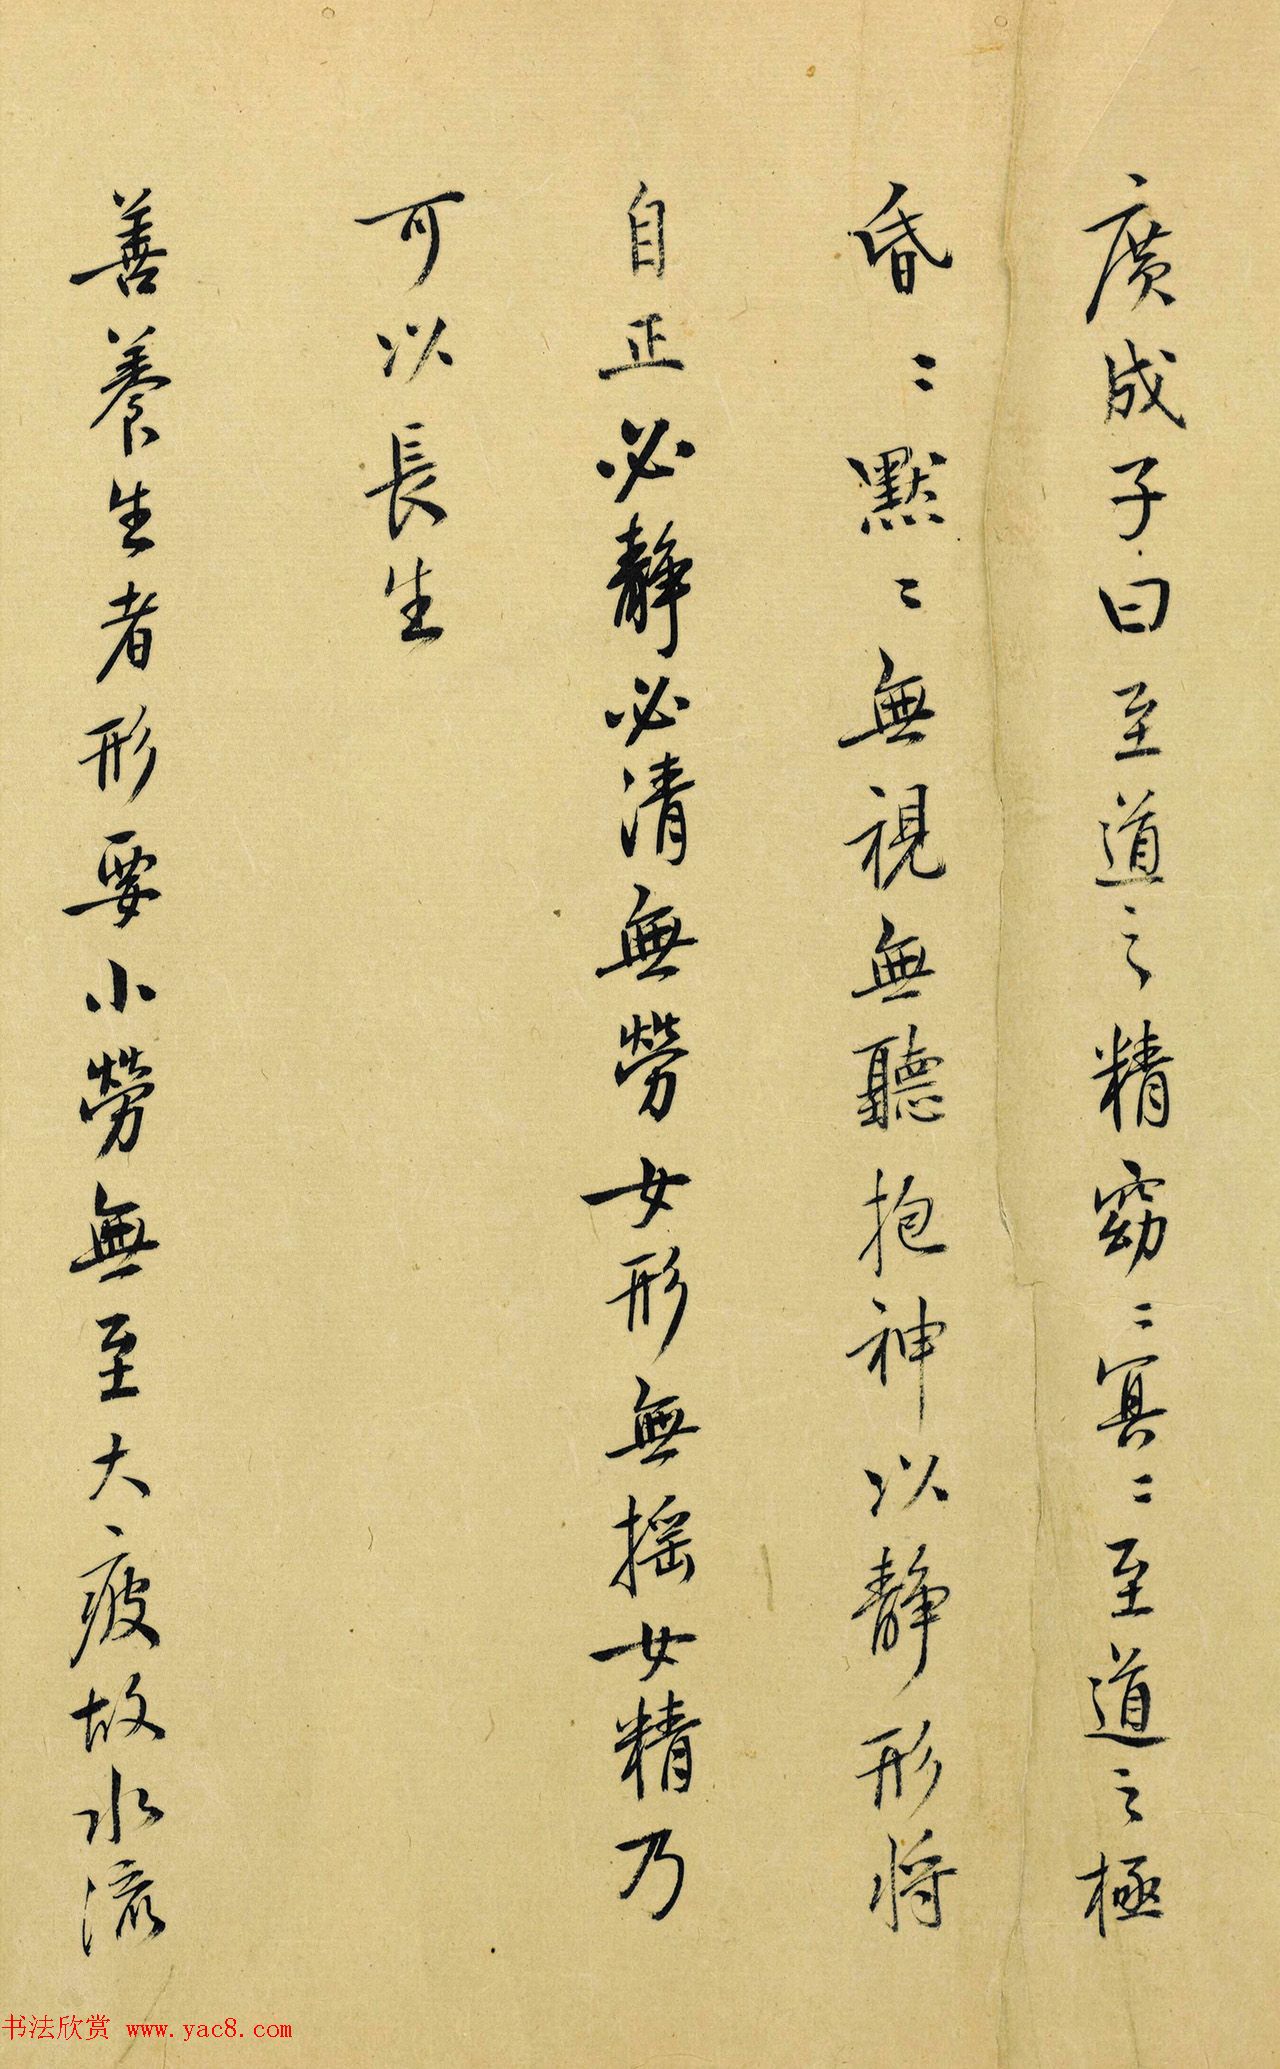 廣成子曰至道之精窈〻冥〻至道之極
昏〻默〻無視無聽抱神以靜形將
自正必靜必清無勞女形無搖女精乃
可以長生
善養生者形要小勞無至大疲故水流
书法欣赏 www.yac8.com